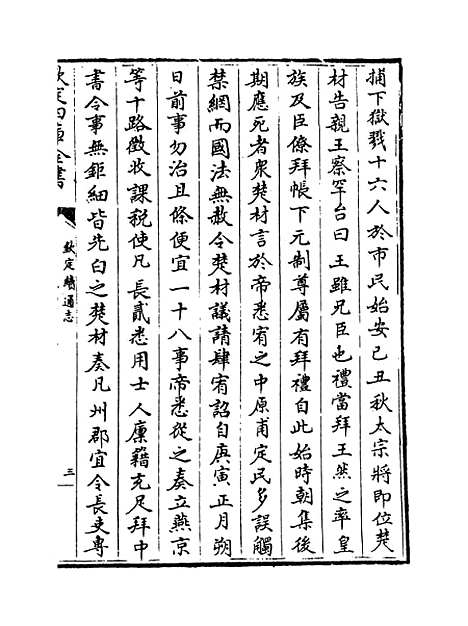 捕下獄戮十六人於市民始安己丑秋太宗將即位楚
材告親王察罕台曰王雖兄臣也禮當拜王然之率皇
族及臣僚拜帳下元制尊屬有拜禮自此始時朝集後
期應死者衆楚材言於帝悉宥之中原甫定民多誤觸
禁網而國法無赦令楚材議請肆宥詔自庚寅正月朔
日前事勿治且條便宜一十八事帝悉從之奏立燕京
等十路徵收課稅使凡長貳悉用士人廩籍充足拜中
書令事無鉅細皆先白之楚材奏凡州郡宜令長吏專
欽定四庫全書
欽定續通志
三